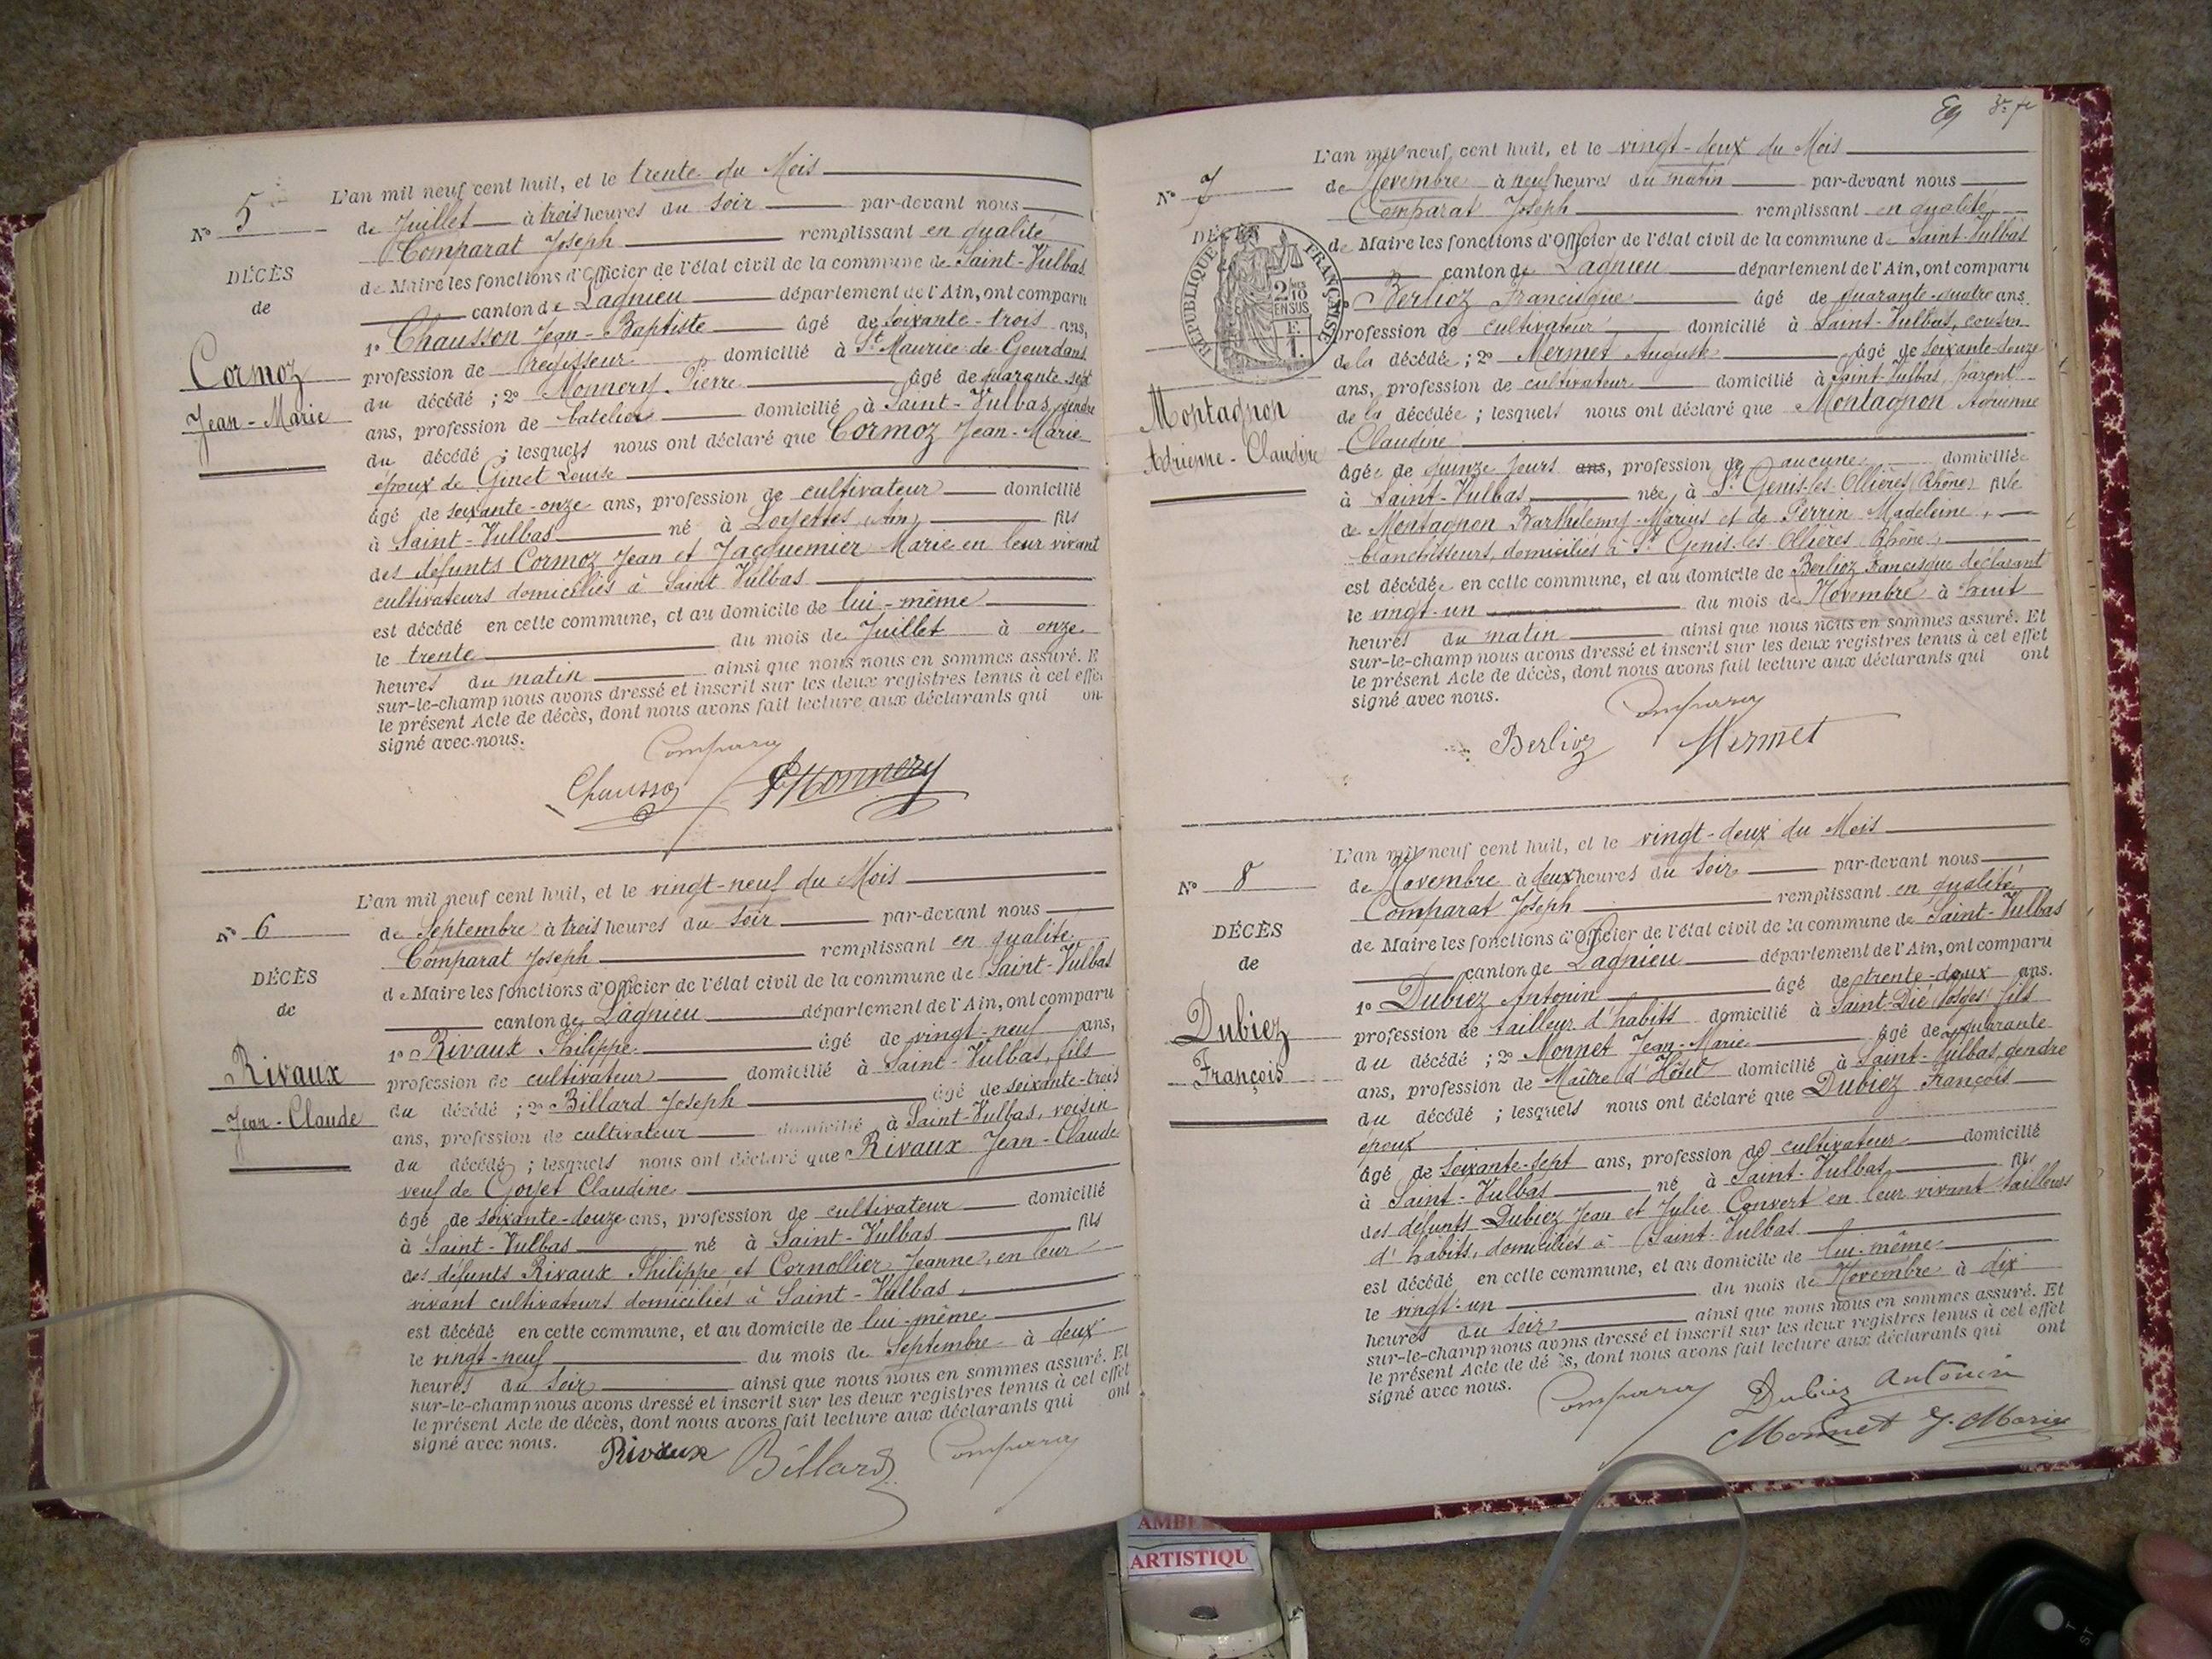 N° 5
DÉCÈS
de
Cormoz
Jean-Marie
L'an mil neuf cent huit, et le trente du Mois
de Juillet à trois heures du soir par-devant nous
Comparat Joseph remplissant en qualité
de Maire les fonctions d'Officier de l'état civil de la commune de Saint-Vulbas
canton de Lagnieu département de l'Ain, ont comparu
1° Chausson Jean-Baptiste âgé de soixante-trois ans,
profession de Régisseur domicilié à St Maurice-de-Gourdans
du décédé ; 2° Monnery Pierre âgé de quarante sept
ans, profession de batelier domicilié à Saint-Vulbas, gendre
du décédé ; lesquels nous ont déclaré que Cormoz Jean-Marie
époux de Ginet Louise
âgé de soixante-onze ans, profession de cultivateur domicilié
à Saint-Vulbas né à Loyettes (Ain) fils
des défunts Cormoz Jean et Jacquemier Marie en leur vivant
cultivateurs domiciliés à Saint Vulbas
est décédé en cette commune, et au domicile de lui-même
le trente du mois de Juillet à onze
heures du matin ainsi que nous nous en sommes assuré. E
sur-le-champ nous avons dressé et inscrit sur les deux registres tenus à cet effe
le présent Acte de décès, dont nous avons fait lecture aux déclarants qui on
signé avec nous.
Comparat
Chausson PMonnery
N° 6
DÉCÈS
de
Rivaux
Jean-Claude
L'an mil neuf cent huit, et le vingt-neuf du Mois
de Septembre à trois heures du soir par-devant nous
Comparat Joseph remplissant en qualité
de Maire les fonctions d'Officier de l'état civil de la commune de Saint-Vulbas
canton de Lagnieu département de l'Ain, ont comparu
1° Rivaux Philippe âgé de vingt-neuf ans,
profession de cultivateur domicilié à Saint-Vulbas, fils
du décédé ; 2° Billard Joseph âgé de soixante-trois
ans, profession de cultivateur domicilié à Saint-Vulbas, voisin
du décédé ; lesquels nous ont déclaré que Rivaux Jean-Claude
veuf de Goyet Claudine
âgé de soixante-douze ans, profession de cultivateur domicilié
à Saint-Vulbas né à Saint-Vulbas fils
des défunts Rivaux Philippe et Cornollier Jeanne, en leur
vivant cultivateurs domiciliés à Saint-Vulbas,
est décédé en cette commune, et au domicile de lui-même
le vingt-neuf du mois de Septembre à deux
heures du soir ainsi que nous nous en sommes assuré. Et
sur-le-champ nous avons dressé et inscrit sur les deux registres tenus à cet effet
le présent Acte de décès, dont nous avons fait lecture aux déclarants qui ont
signé avec nous.
Rivaux Billard Comparat
N° 7
DÉCÈS
RÉPUBLIQUE FRANÇAISE
2/10 EN SUS
Montagnon
Adrienne-Claudine
L'an mil neuf cent huit, et le vingt-deux du Mois
de Novembre à neuf heures du matin par-devant nous
Comparat Joseph remplissant en qualité
de Maire les fonctions d'Officier de l'état civil de la commune de Saint-Vulbas
canton de Lagnieu département de l'Ain, ont comparu
1° Berlioz Francisque âgé de quarante-quatre ans.
profession de cultivateur domicilié à Saint-Vulbas, cousin
de la décédée ; 2° Mermet Auguste âgé de soixante-douze
ans, profession de cultivateur domicilié à Saint-Vulbas, parent
de la décédée ; lesquels nous ont déclaré que Montagnon Adrienne
Claudine
âgée de quinze jours ans, profession de aucune domiciliée
à Saint-Vulbas née à St Genis-les-Ollières (Rhône) fille
de Montagnon Barthélemy-Marius et de Perrin Madeleine,
blanchisseurs, domiciliés à St Genis-les-Ollières (Rhône)
est décédée en cette commune, et au domicile de Berlioz Francisque déclarant
le vingt-un du mois de Novembre à huit
heures du matin ainsi que nous nous en sommes assuré. Et
sur-le-champ nous avons dressé et inscrit sur les deux registres tenus à cet effet
le présent Acte de décès, dont nous avons fait lecture aux déclarants qui ont
signé avec nous.
Comparat
Berlioz Mermet
N° 8
DÉCÈS
de
Dubiez
François
L'an mil neuf cent huit, et le vingt-deux du Mois
de Novembre à deux heures du soir par-devant nous
Comparat Joseph remplissant en qualité
de Maire les fonctions d'Officier de l'état civil de la commune de Saint-Vulbas
canton de Lagnieu département de l'Ain, ont comparu
1° Dubiez Antonin âgé de trente-deux ans.
profession de tailleur d'habits domicilié à Saint-Dié (Vosges) fils
du décédé ; 2° Monnet Jean-Marie âgé de quarante
ans, profession de Maître d'Hôtel domicilié à Saint-Vulbas, gendre
du décédé ; lesquels nous ont déclaré que Dubiez François
époux
âgé de soixante-sept ans, profession de cultivateur domicilié
à Saint-Vulbas né à Saint-Vulbas fils
des défunts Dubiez Jean et Julie Convert en leur vivant tailleurs
d'habits, domiciliés à Saint-Vulbas
est décédé en cette commune, et au domicile de lui-même
le vingt-un du mois de Novembre à dix
heures du soir ainsi que nous nous en sommes assuré. Et
sur-le-champ nous avons dressé et inscrit sur les deux registres tenus à cet effet
le présent Acte de dé ès, dont nous avons fait lecture aux déclarants qui ont
signé avec nous.
Comparat Dubiez Antonin
Monnet J. Marie
ARTISTIQU